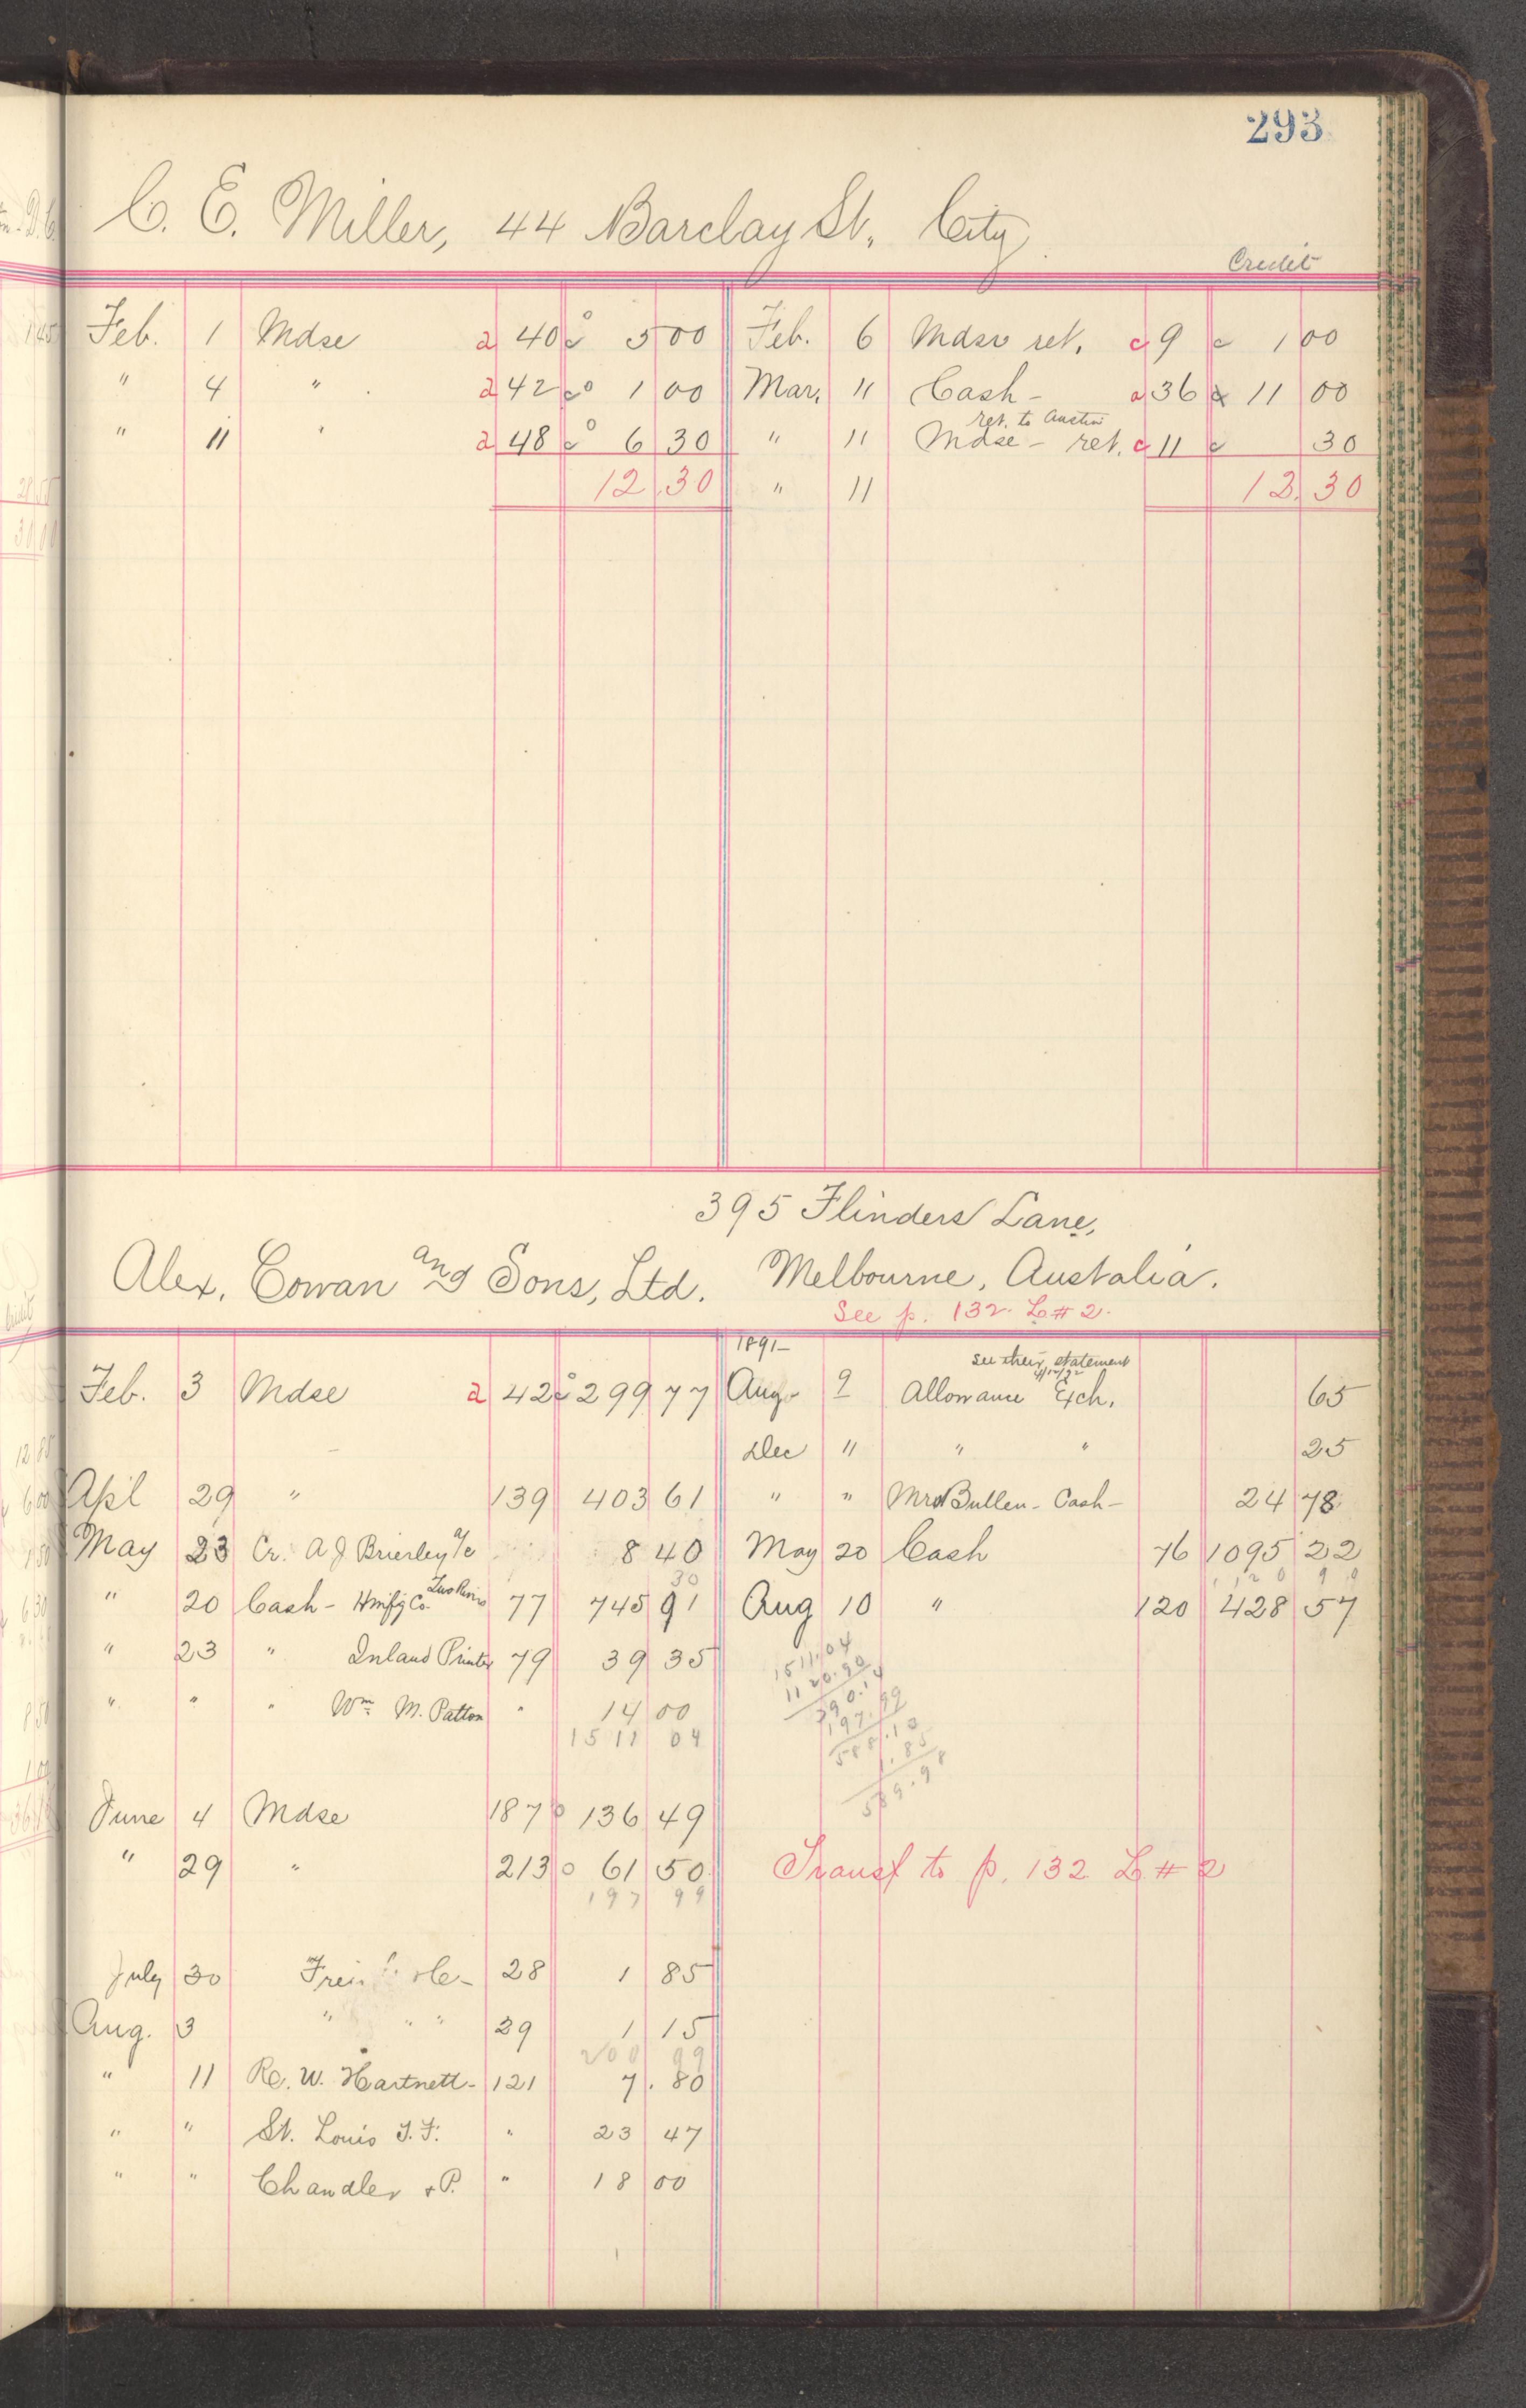 293
C. E. Miller, 44 Barclay St. City
Credit
Feb. 1 Mdse a 40 c 5 00 Feb. 6 Mdse ret. c 9 c 1 00
" 4 " a 42 c 1 00 Mar. 11 Cash - a 36 11 00
ret. to Austin
" 11 " a 48 c 6 30 " 11 Mdse - ret. c 11 c 30
12.30 " 11 12.30
395 Flinders Lane,
Alex. Cowan and Sons, Ltd. Melbourne, Austalia.
See p. 132. L # 2.
1891-
see their statement
Feb. 3 Mdse a 42 c 299 77 Aug. 9 Allowance Exch. 65
Dec " " " 25
Apl 29 " 139 403 61 " " Bullen - Cash - 24 78
May 23 Cr. A J Brierley a/c 8 40 May 20 Cash 76 1095 22
30 1120 90
" 20 Cash - Hmfg Co. 77 745 91 Aug 10 " 120 428 57
" 23 " Inland Printer 79 39 35
" " " Wm. M. Patton " 14 00
1511 04
1511.04
1120.90
390.14
197.99
588.13
1.85
589.98
June 4 Mdse 187 o 136 49
" 29 " 213 o 61 50 Transf to p. 132 L # 2
197 99
July 30 28 1 85
Aug. 3 " " " 29 1 15
200 99
" 11 R. W. Hartnett - 121 7.80
" " St. Louis T. F. " 23 47
" " Chandler + P. " 18 00